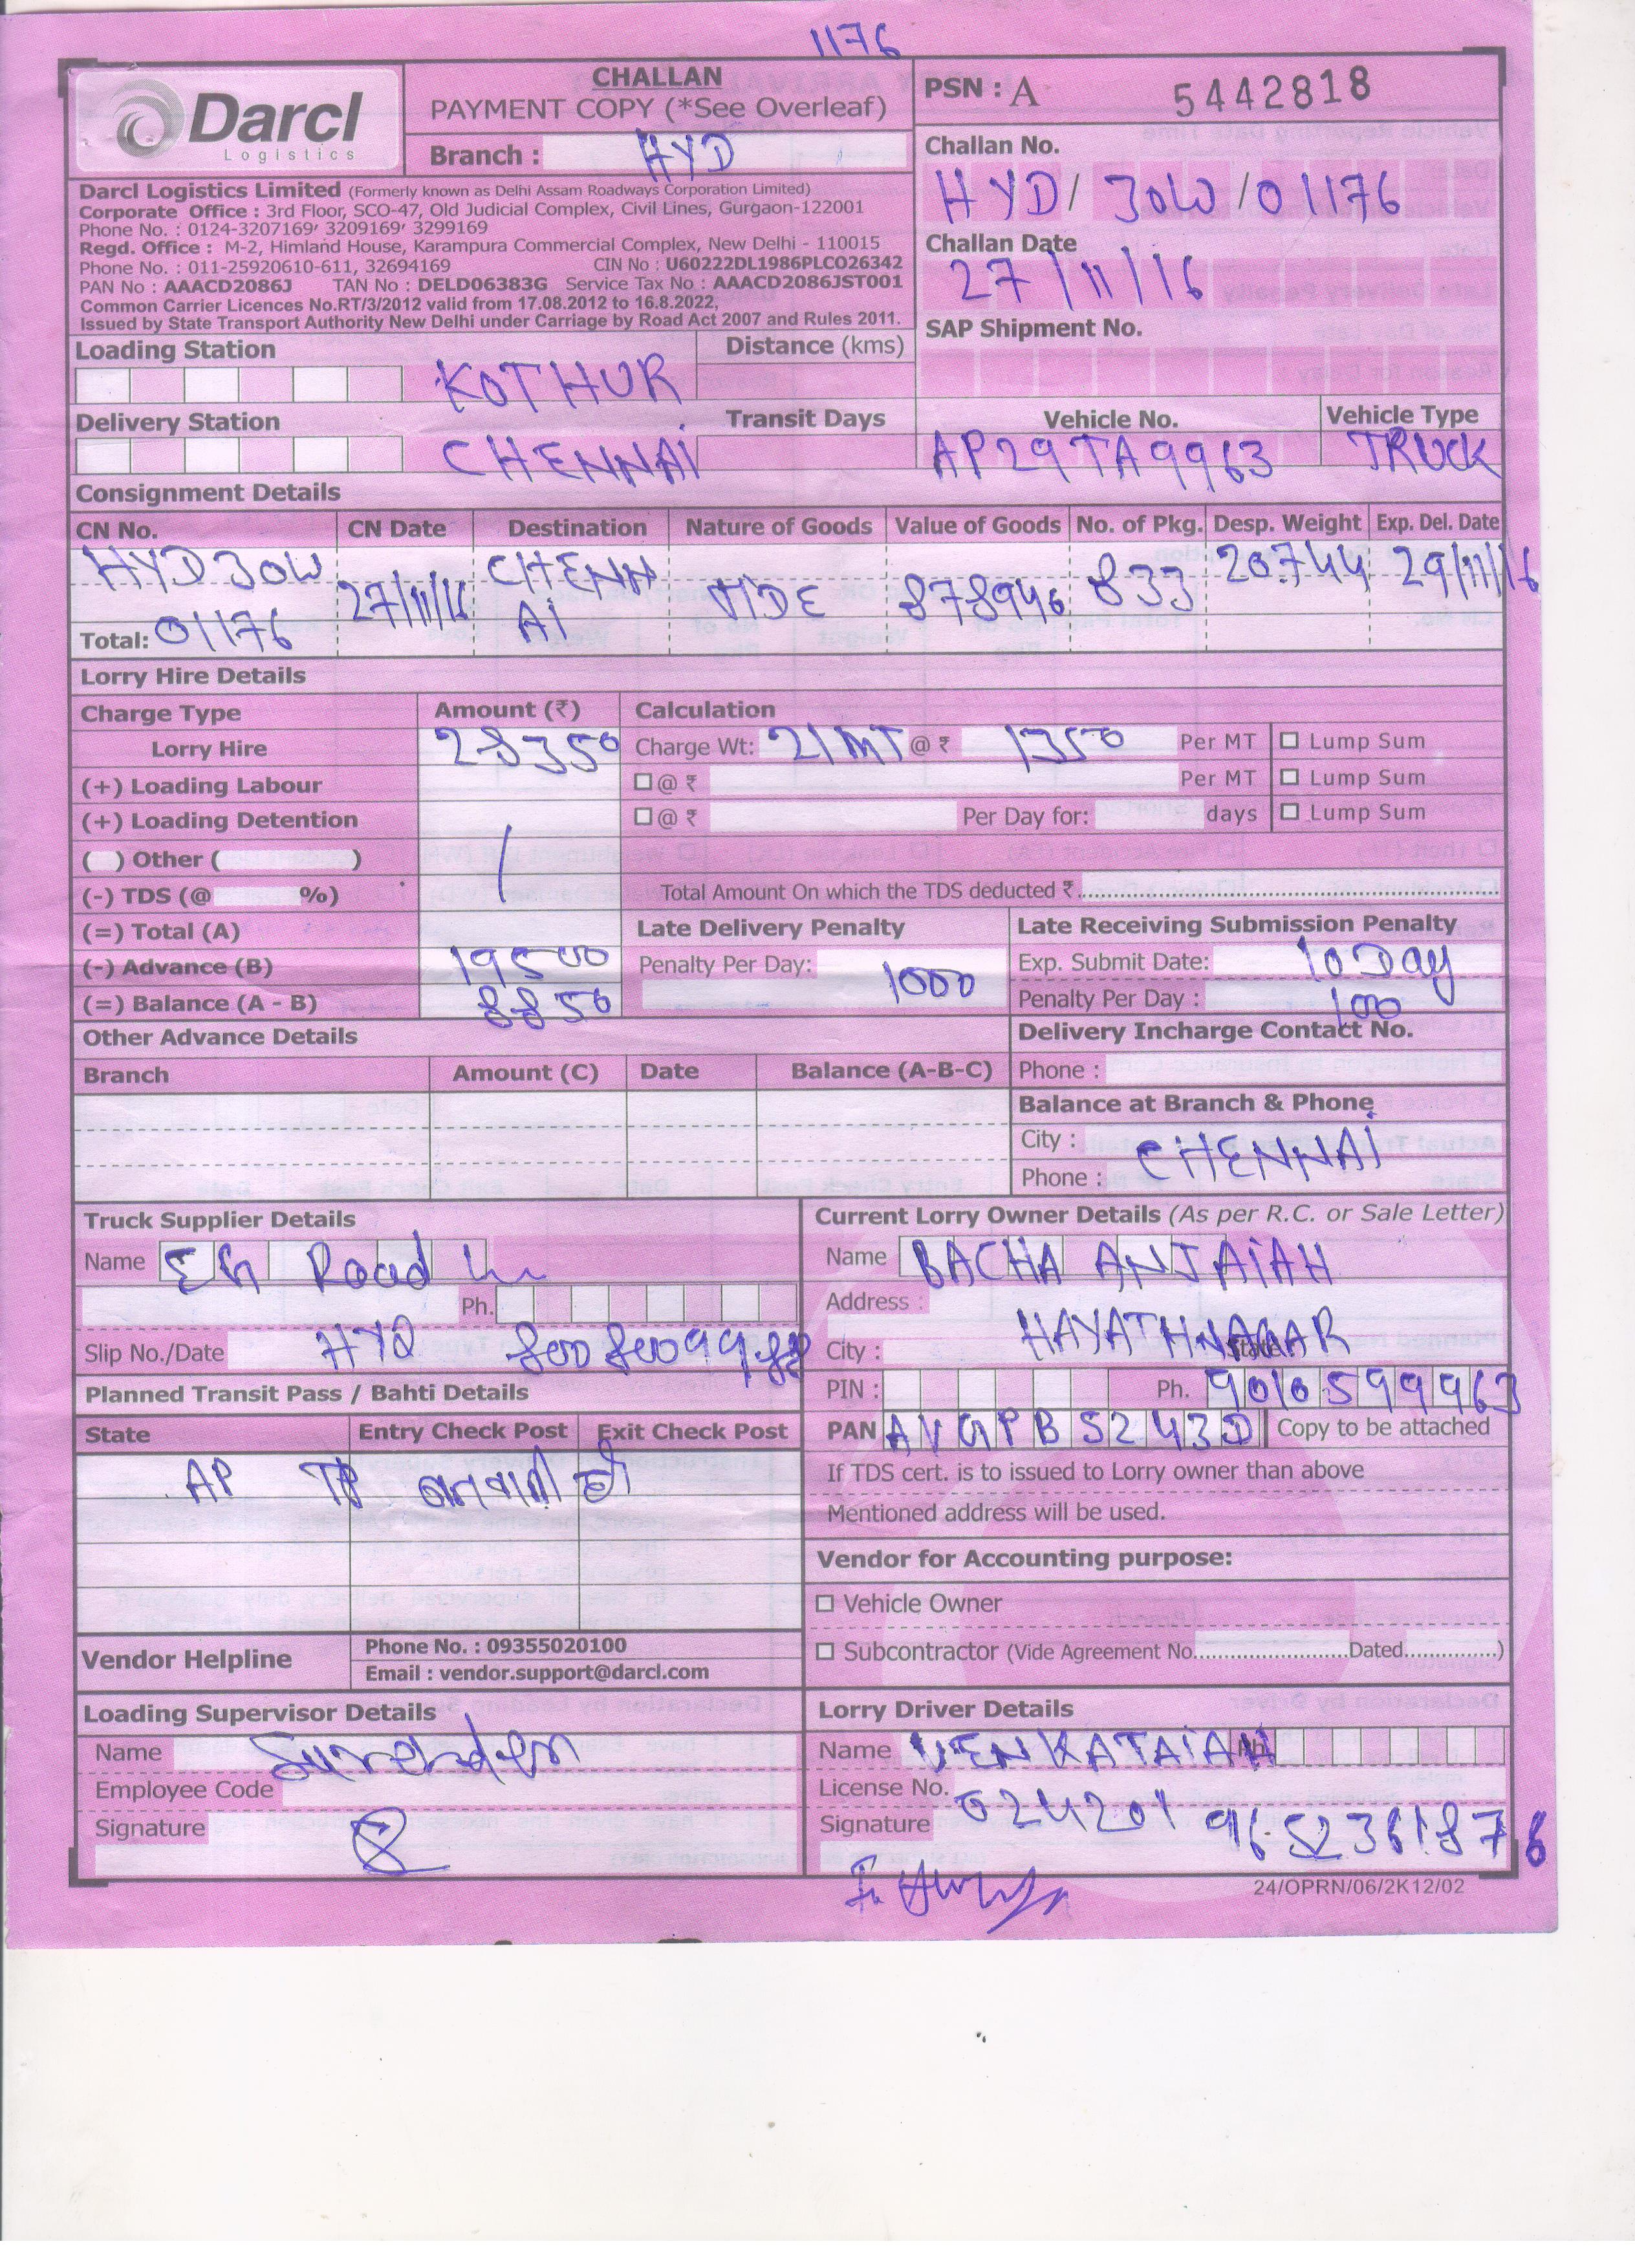 1176
Darcl
Logistics
CHALLAN
PAYMENT COPY (*See Overleaf)
Branch : HYD
PSN : A 5442818
Challan No.
HYD/ JOW /01176
Challan Date
27/11/16
SAP Shipment No.
Darcl Logistics Limited (Formerly known as Delhi Assam Roadways Corporation Limited)
Corporate Office : 3rd Floor, SCO-47, Old Judicial Complex, Civil Lines, Gurgaon-122001
Phone No. : 0124-3207169, 3209169, 3299169
Regd. Office : M-2, Himland House, Karampura Commercial Complex, New Delhi - 110015
Phone No. : 011-25920610-611, 32694169 CIN No : U60222DL1986PLCO26342
PAN No : AAACD2086J TAN No : DELD06383G Service Tax No : AAACD2086JST001
Common Carrier Licences No.RT/3/2012 valid from 17.08.2012 to 16.8.2022,
Issued by State Transport Authority New Delhi under Carriage by Road Act 2007 and Rules 2011.
Loading Station KOTHUR Distance (kms)
Delivery Station CHENNAI Transit Days
Vehicle No. Vehicle Type
AP29TA9963 TRUCK
Consignment Details
CN No. CN Date Destination Nature of Goods Value of Goods No. of Pkg. Desp. Weight Exp. Del. Date
HYD JOW 27/11/16 CHENN 878946 833 20.744 29/11/16
Total: 01176 AI
Lorry Hire Details
Charge Type Amount (₹) Calculation
Lorry Hire 28350 Charge Wt: 21MT @ ₹ 1350 Per MT Lump Sum
(+) Loading Labour @ ₹ Per MT Lump Sum
(+) Loading Detention @ ₹ Per Day for: days Lump Sum
( ) Other ( )
(-) TDS (@ %) Total Amount On which the TDS deducted ₹
(=) Total (A) Late Delivery Penalty Late Receiving Submission Penalty
(-) Advance (B) 19500 Penalty Per Day: 1000 Exp. Submit Date: 10 Day
(=) Balance (A - B) 8850 Penalty Per Day : 100
Other Advance Details Delivery Incharge Contact No.
Branch Amount (C) Date Balance (A-B-C) Phone :
Balance at Branch & Phone
City : CHENNAI
Phone :
Truck Supplier Details
Name Road
Ph.
Slip No./Date 8008009988
Planned Transit Pass / Bahti Details
State Entry Check Post Exit Check Post
AP TP बनवानी है
Vendor Helpline Phone No. : 09355020100
Email : vendor.support@darcl.com
Current Lorry Owner Details (As per R.C. or Sale Letter)
Name BACHA ANJAIAH
Address :
HAYATHNAGAR
City : State
PIN : Ph. 9010599963
PAN AVGPB5243D Copy to be attached
If TDS cert. is to issued to Lorry owner than above
Mentioned address will be used.
Vendor for Accounting purpose:
Vehicle Owner
Subcontractor (Vide Agreement No. Dated )
Loading Supervisor Details
Name Surender
Employee Code
Signature
Lorry Driver Details
Name VENKATAIAH Ph.
License No. 024201
Signature 9652361876
24/OPRN/06/2K12/02